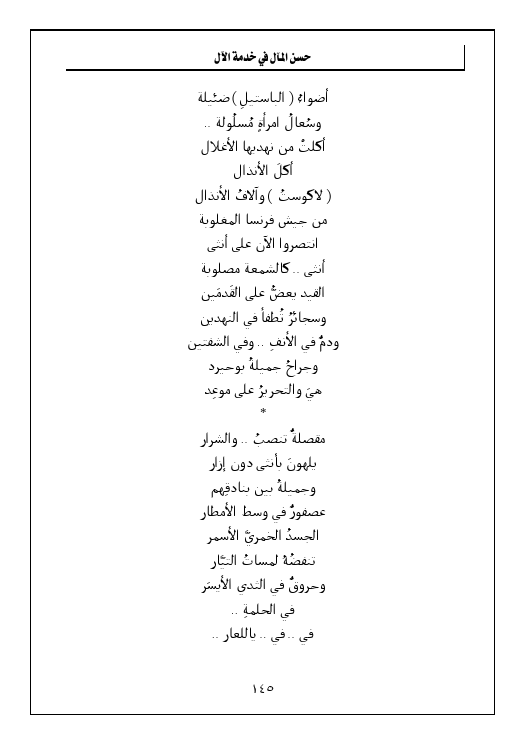 حسن المآل في خدمة الآل
أضواءُ ( الباستيلِ ) ضئيلة
وسُعالُ امرأةٍ مُسلُولة ..
أكلتْ من نهديها الأغلال
أكلَ الأنذال
( لاكوستُ ) وآلافُ الأنذال
من جيش فرنسا المغلوبة
انتصروا الآن على أنثى
أنثى .. كالشمعة مصلوبة
القيد يعضُّ على القَدمَين
وسجائرُ تُطفأ في النهدين
ودمٌ في الأنفِ .. وفي الشفتين
وجراحُ جميلةُ بوحيرد
هيَ والتحريرُ على موعِد
*
مقصلةٌ تنصبُ .. والشرار
يلهونَ بأنثى دون إزار
وجميلةُ بين بنادقِهم
عصفورٌ في وسط الأمطار
الجسدُ الخمريّ الأسمر
تنفضُهُ لمساتُ التيّار
وحروقٌ في الثدي الأيسَر
في الحلمةِ ..
في .. في .. ياللعار ..
١٤٥